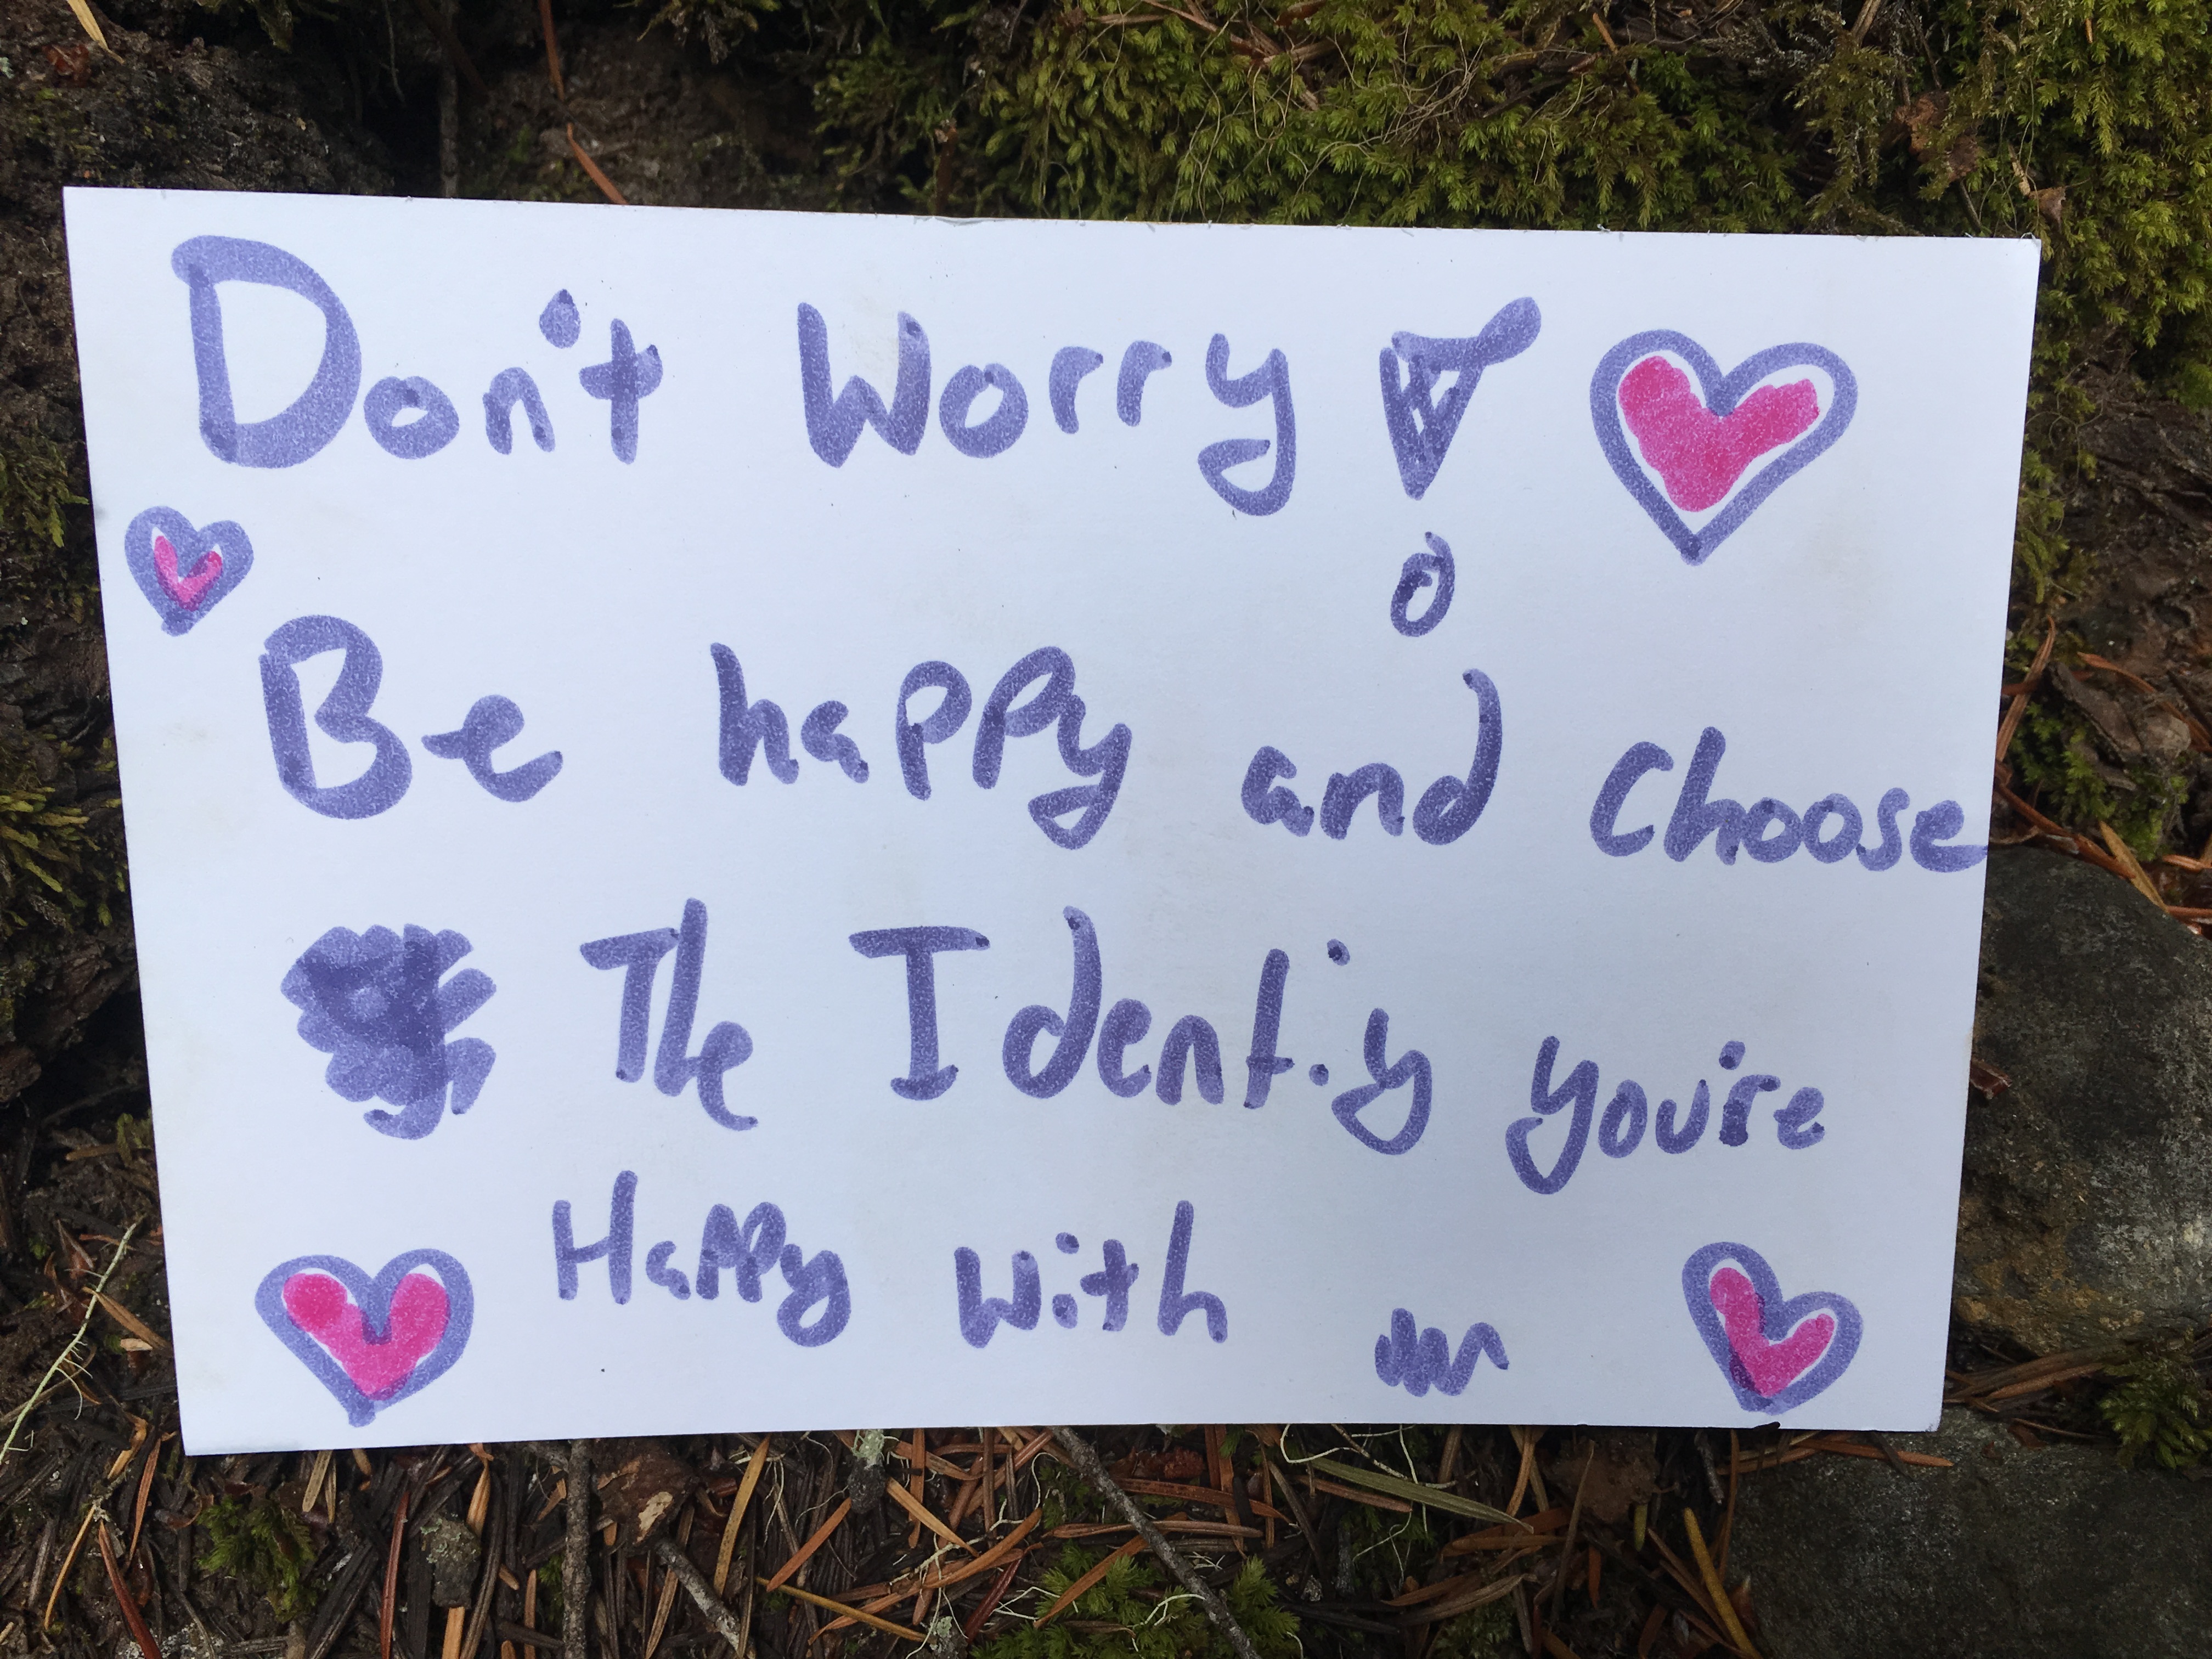 Don't Worry!
Be happy and Choose
The Identiy you're
Happy with